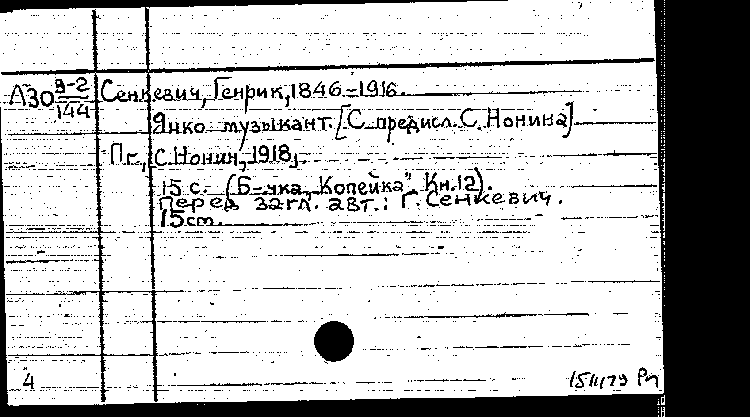 А30 9-2/144 Сенкевич, Генрик, 1846-1916.
Янко музыкант. [С предисл. С. Нонина]
Пг., С. Нонин, 1918.
15 с. (Б-чка "Копейка". Кн. 12).
Перед загл. авт.: Г. Сенкевич.
15 см.
4